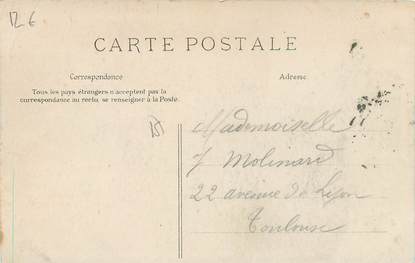 12 €
CARTE POSTALE
Correspondance
Adresse
Tous les pays étrangers n'acceptent pas la
correspondance au recto, se renseigner à la Poste.
Mademoiselle
J Molinard
22 avenue de Lyon
Toulouse